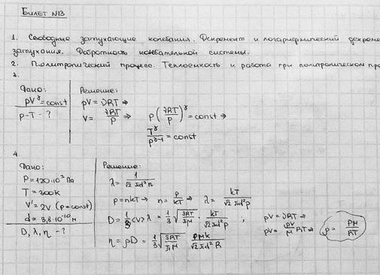 БИЛЕТ №13
1. Свободные затухающие колебания. Декремент и логарифмический декремент
затухания. Добротность колебательной системы.
2. Политропический процесс. Теплоемкость и работа при политропическом
3.
Дано:
pV^γ = const
p-T - ?
Решение:
pV = νRT →
V = νRT/p → p(νRT/p)^γ = const →
T^γ/p^(γ-1) = const
4.
Дано:
T = 200k
V' = 2V (p = const)
D, λ, η - ?
Решение:
λ = 1/(√2 πd²n)
p = nkT → n = p/kT → λ = kT/
D = 1/3 <v> λ = 1/3
η = ρD =
pV = νRT →
ρ = pM/RT